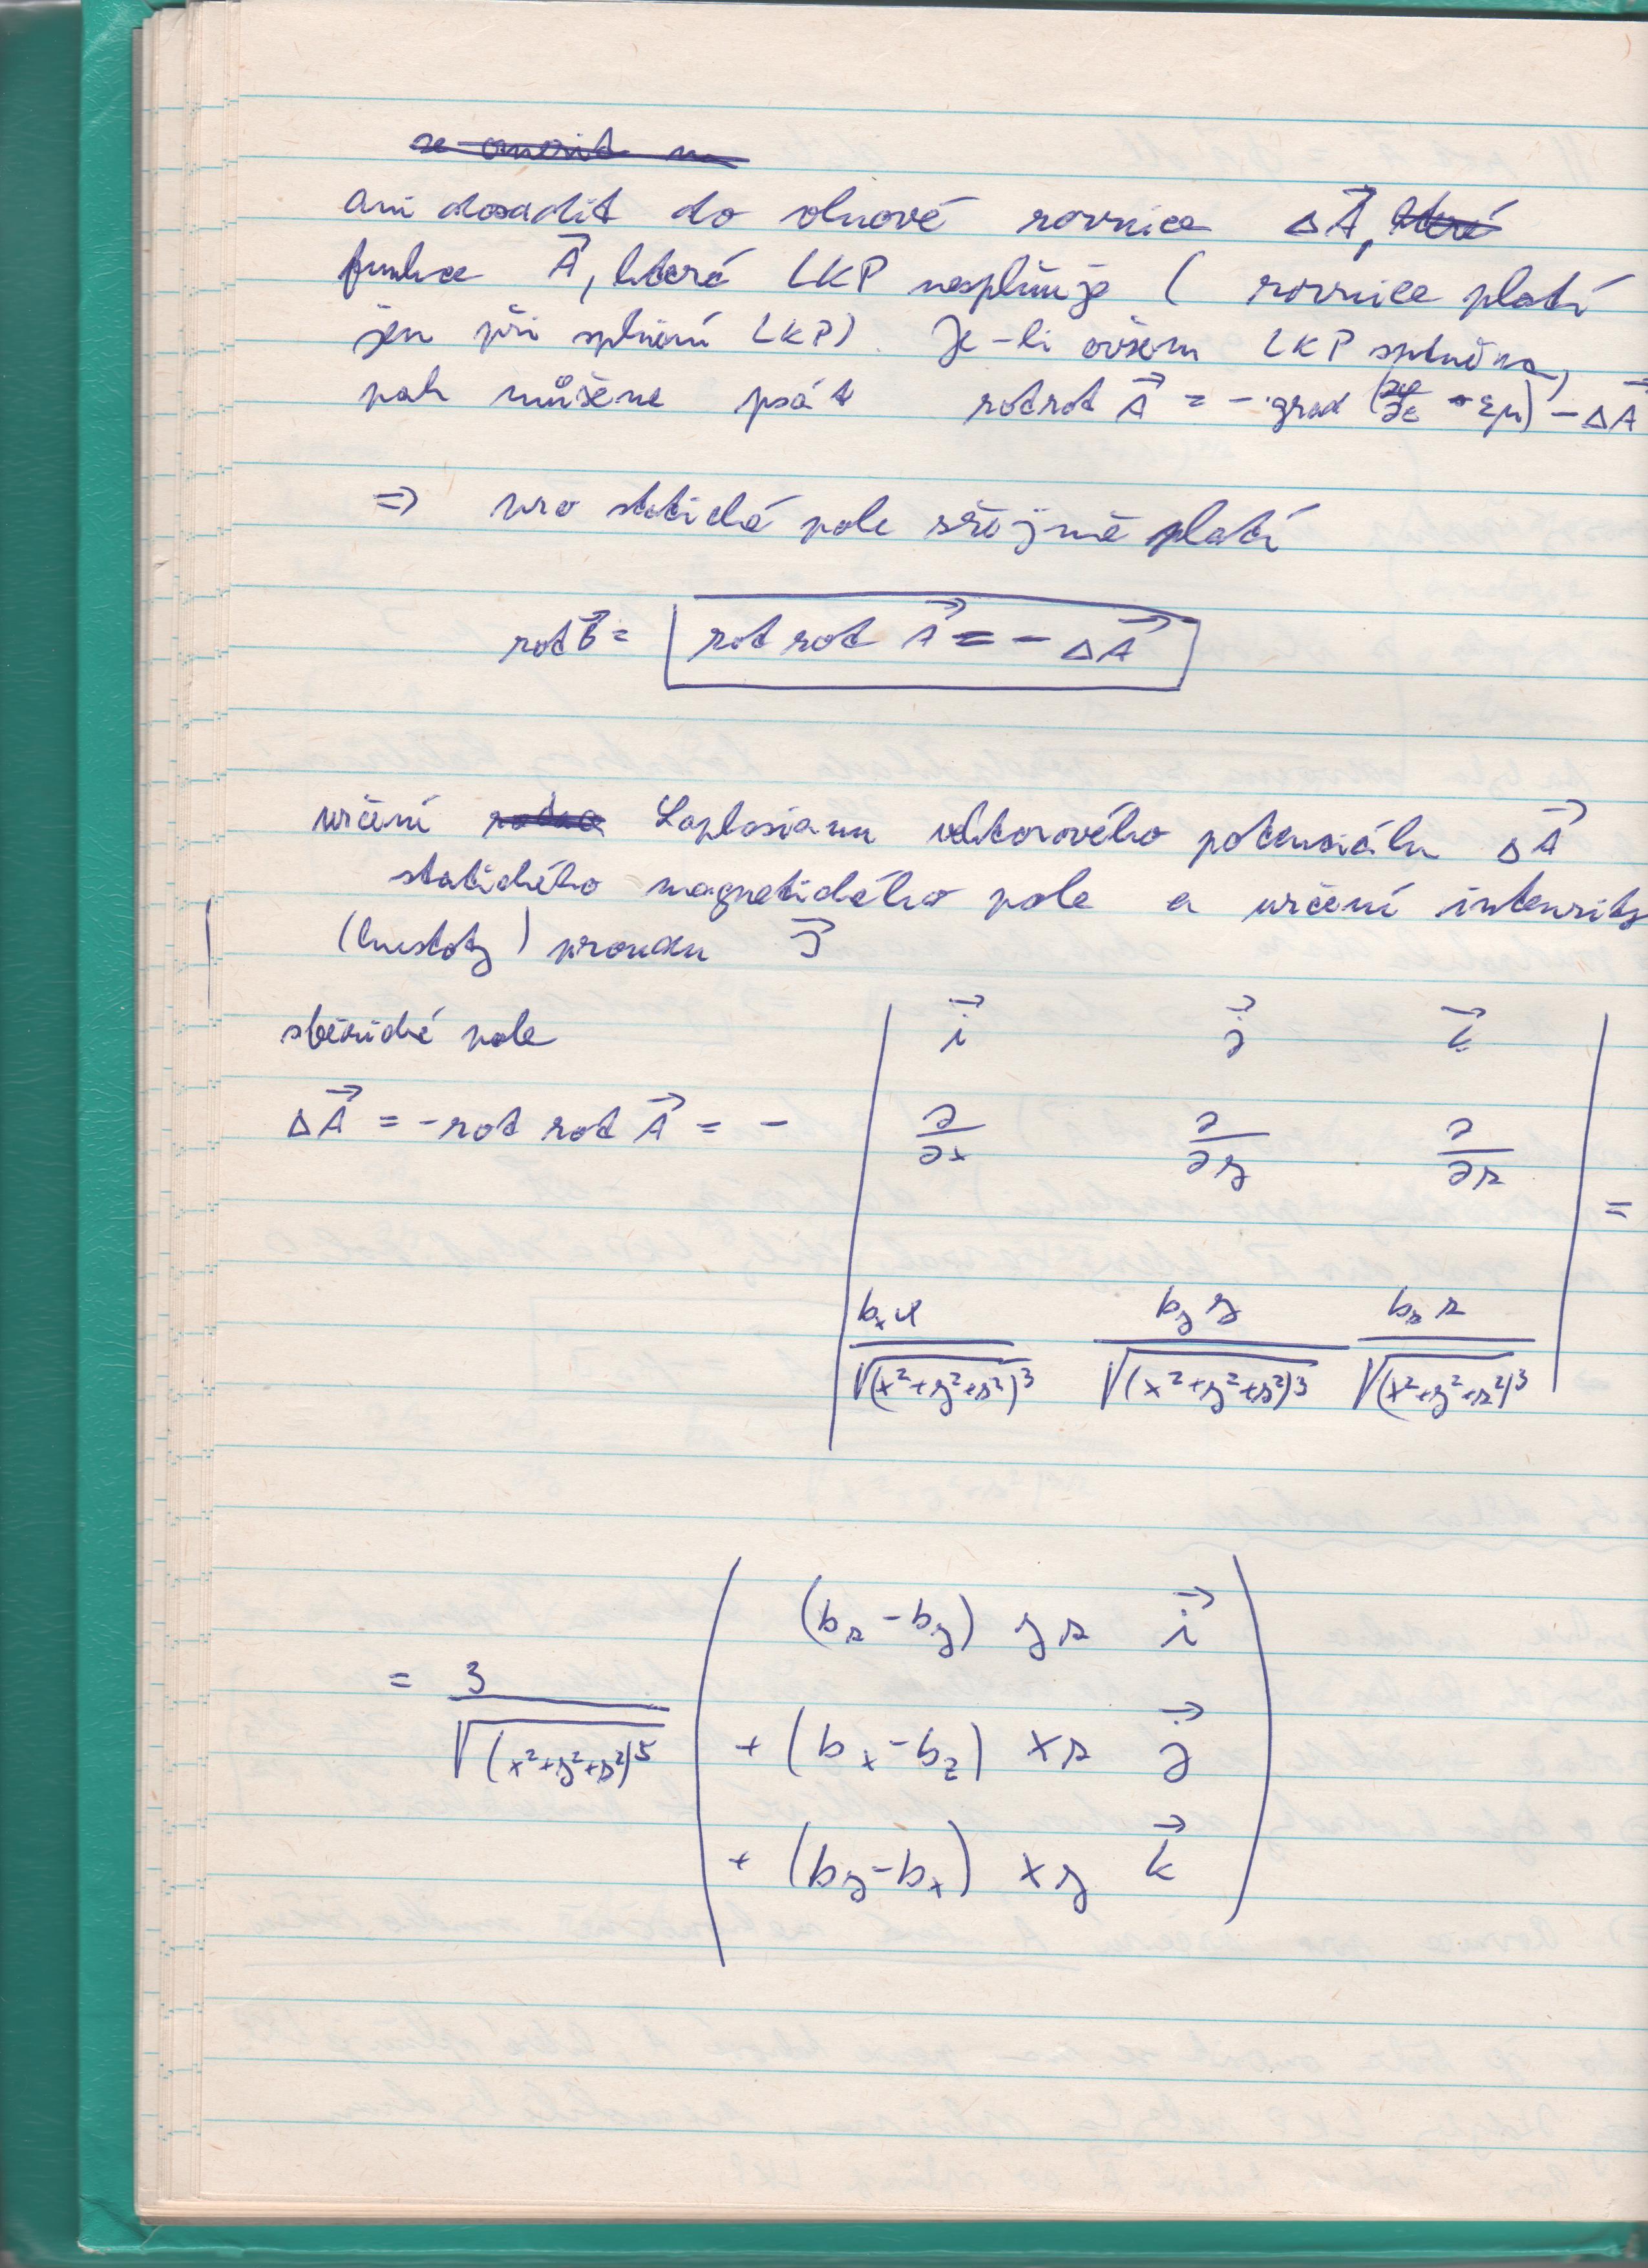 ani dosadit do vlnové rovnice ΔA⃗,
funkce A⃗, která LKP nesplňuje ( rovnice platí
jen při splnění LKP). Je-li ovšem LKP splněna,
pak můžeme psát rot rot A⃗ = - grad (∂φ/∂t · εμ) - ΔA⃗
⇒ pro statické pole zřejmě platí
rot B⃗ = rot rot A⃗ = - ΔA⃗
určení Laplasianu vektorového potenciálu ΔA⃗
statického magnetického pole a určení intenzity
(hustoty) proudu J⃗
sférické pole
i⃗ j⃗ k⃗
ΔA⃗ = - rot rot A⃗ = - ∂/∂x ∂/∂y ∂/∂z =
b_x x / √(x²+y²+z²)³ b_y y / √(x²+y²+z²)³ b_z z / √(x²+y²+z²)³
(b_z - b_y) yz i⃗
= 3 / √(x²+y²+z²)⁵ + (b_x - b_z) xz j⃗
+ (b_y - b_x) xy k⃗